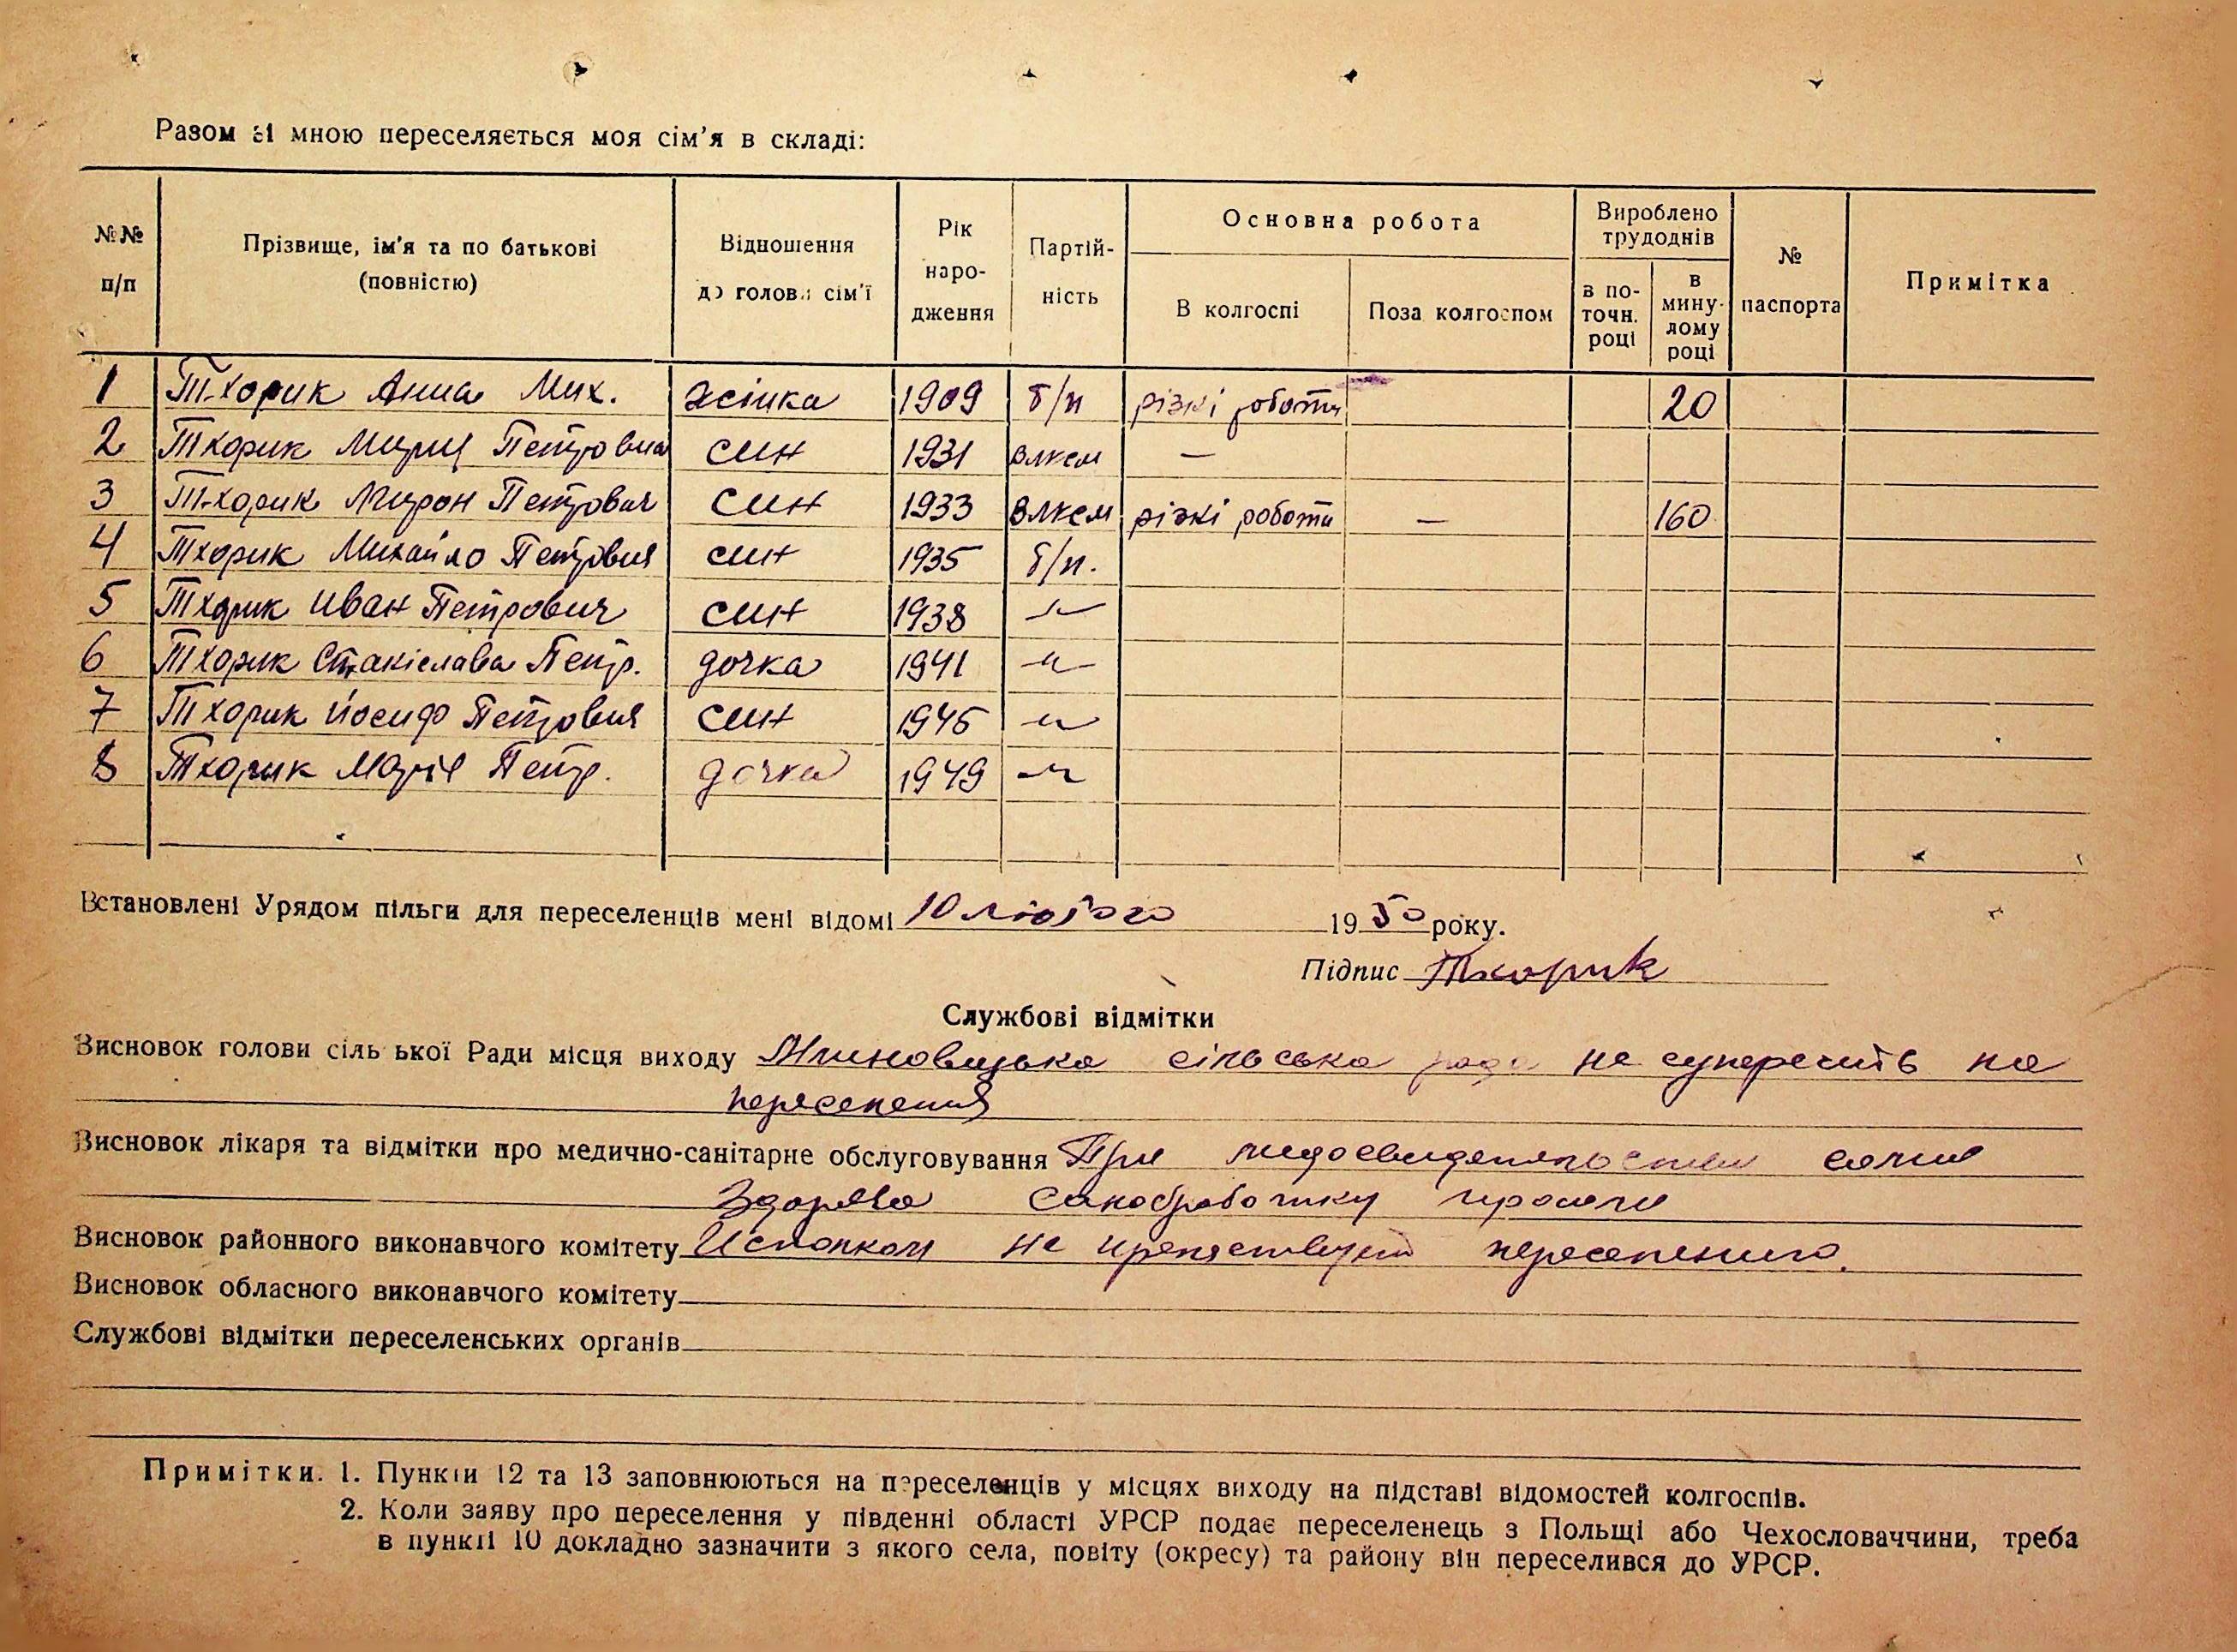 Разом зі мною переселяється моя сім'я в складі:
№№ п/п
Прізвище, ім'я та по батькові (повністю)
Відношення до голови сім'ї
Рік народження
Партій-ність
Основна робота
В колгоспі
Поза колгоспом
Вироблено трудоднів
в по-точн. році
в мину-лому році
№ паспорта
Примітка
1 Тхорик Анна Мих. жінка 1909 б/п різні роботи 20
2 Тхорик Петровна син 1931 влксм —
3 Тхорик Мирон Петрович син 1933 влксм різні роботи — 160
4 Тхорик Михайло Петрович син 1935 б/п.
5 Тхорик Иван Петрович син 1938 -"-
6 Тхорик Станіслава Петр. дочка 1941 -"-
7 Тхорик Йосиф Петрович син 1945 -"-
8 Тхорик Марія Петр. дочка 1949 -"-
Встановлені Урядом пільги для переселенців мені відомі 10 лютого 1950 року.
Підпис Тхорик
Службові відмітки
Висновок голови сільської Ради місця виходу сільська рада не суперечить на
переселення
Висновок лікаря та відмітки про медично-санітарне обслуговування При
здорова санобработку
Висновок районного виконавчого комітету Исполком не препятствует переселению.
Висновок обласного виконавчого комітету
Службові відмітки переселенських органів
Примітки. 1. Пункти 12 та 13 заповнюються на переселенців у місцях виходу на підставі відомостей колгоспів.
2. Коли заяву про переселення у південні області УРСР подає переселенець з Польщі або Чехословаччини, треба
в пункті 10 докладно зазначити з якого села, повіту (окресу) та району він переселився до УРСР.